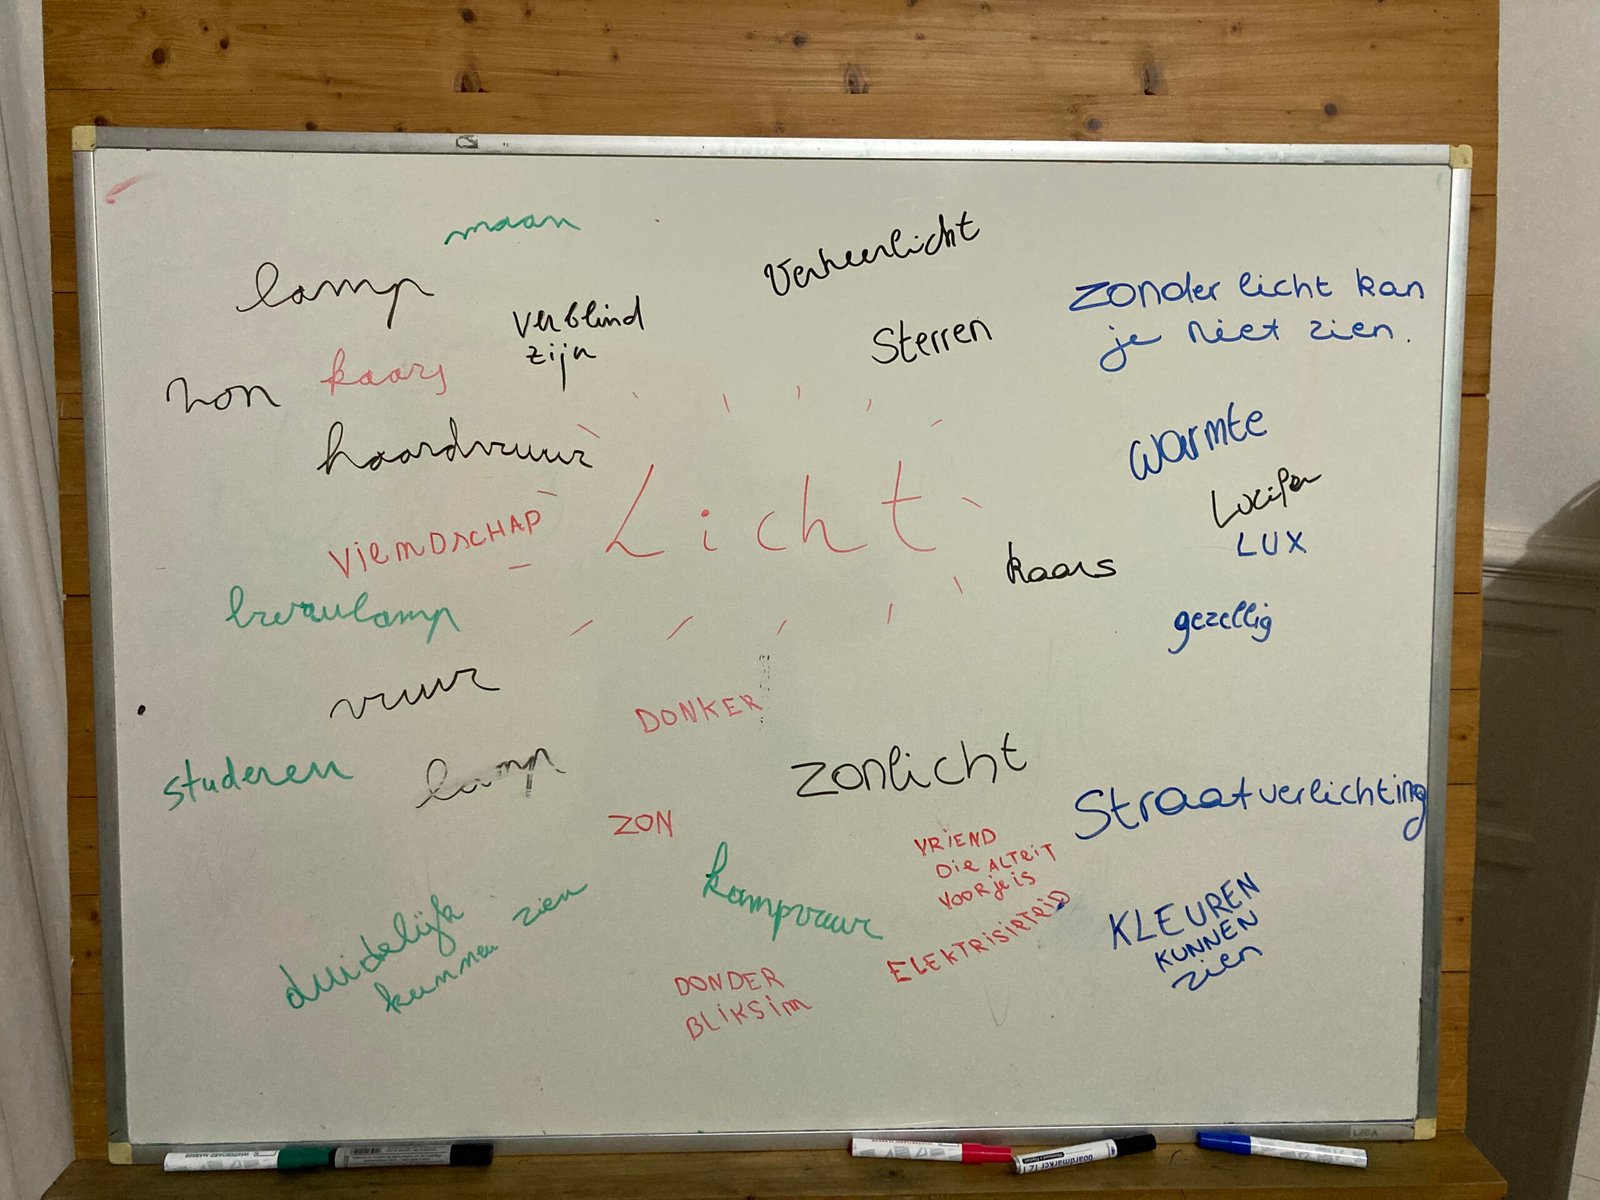 maan
lamp
Verheerlicht
verblind
zijn
Sterren
zonder licht kan
je niet zien.
zon
kaars
haardvuur
warmte
Lucifer
LUX
Licht
VIENDSCHAP
kaars
gezellig
vuur
DONKER
studeren
lamp
zonlicht
Straatverlichting
ZON
VRIEND
Die ALTEIT
VOOR je is
ELEKTRISITEID
kampvuur
KLEUREN
KUNNEN
zien
duidelijk
kunnen zien
DONDER
BLIKSIM
WHITEBOARD MARKER
boardmarker